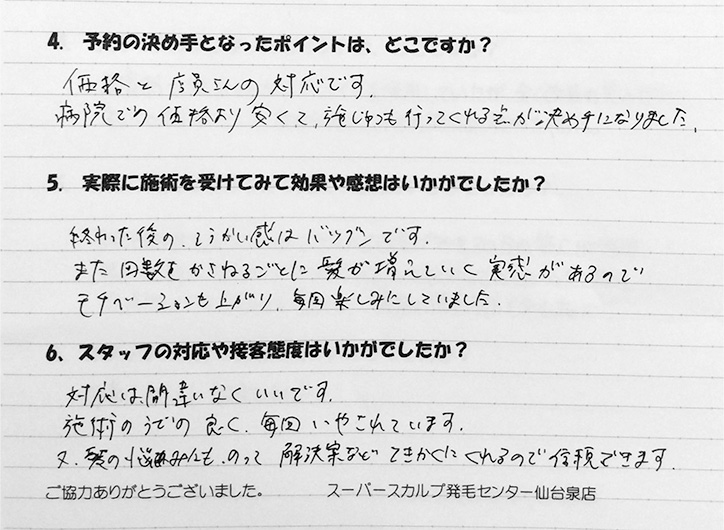 4. 予約の決め手となったポイントは、どこですか？
価格と店員さんの対応です。
病院での価格より安くて、施じゅつも行ってくれる点が決め手になりました。
5. 実際に施術を受けてみて効果や感想はいかがでしたか？
終わった後の、そうかい感はバツグンです。
また回数をかさねるごとに髪が増えていく実感があるので
モチベーションも上がり、毎回楽しみにしていました。
6、スタッフの対応や接客態度はいかがでしたか？
対応は間違いなくいいです。
施術のうでの良く、毎回いやされています。
又、髪の悩みにも、のって解決案などてきかくにくれるので信頼できます。
ご協力ありがとうございました。 スーパースカルプ発毛センター仙台泉店